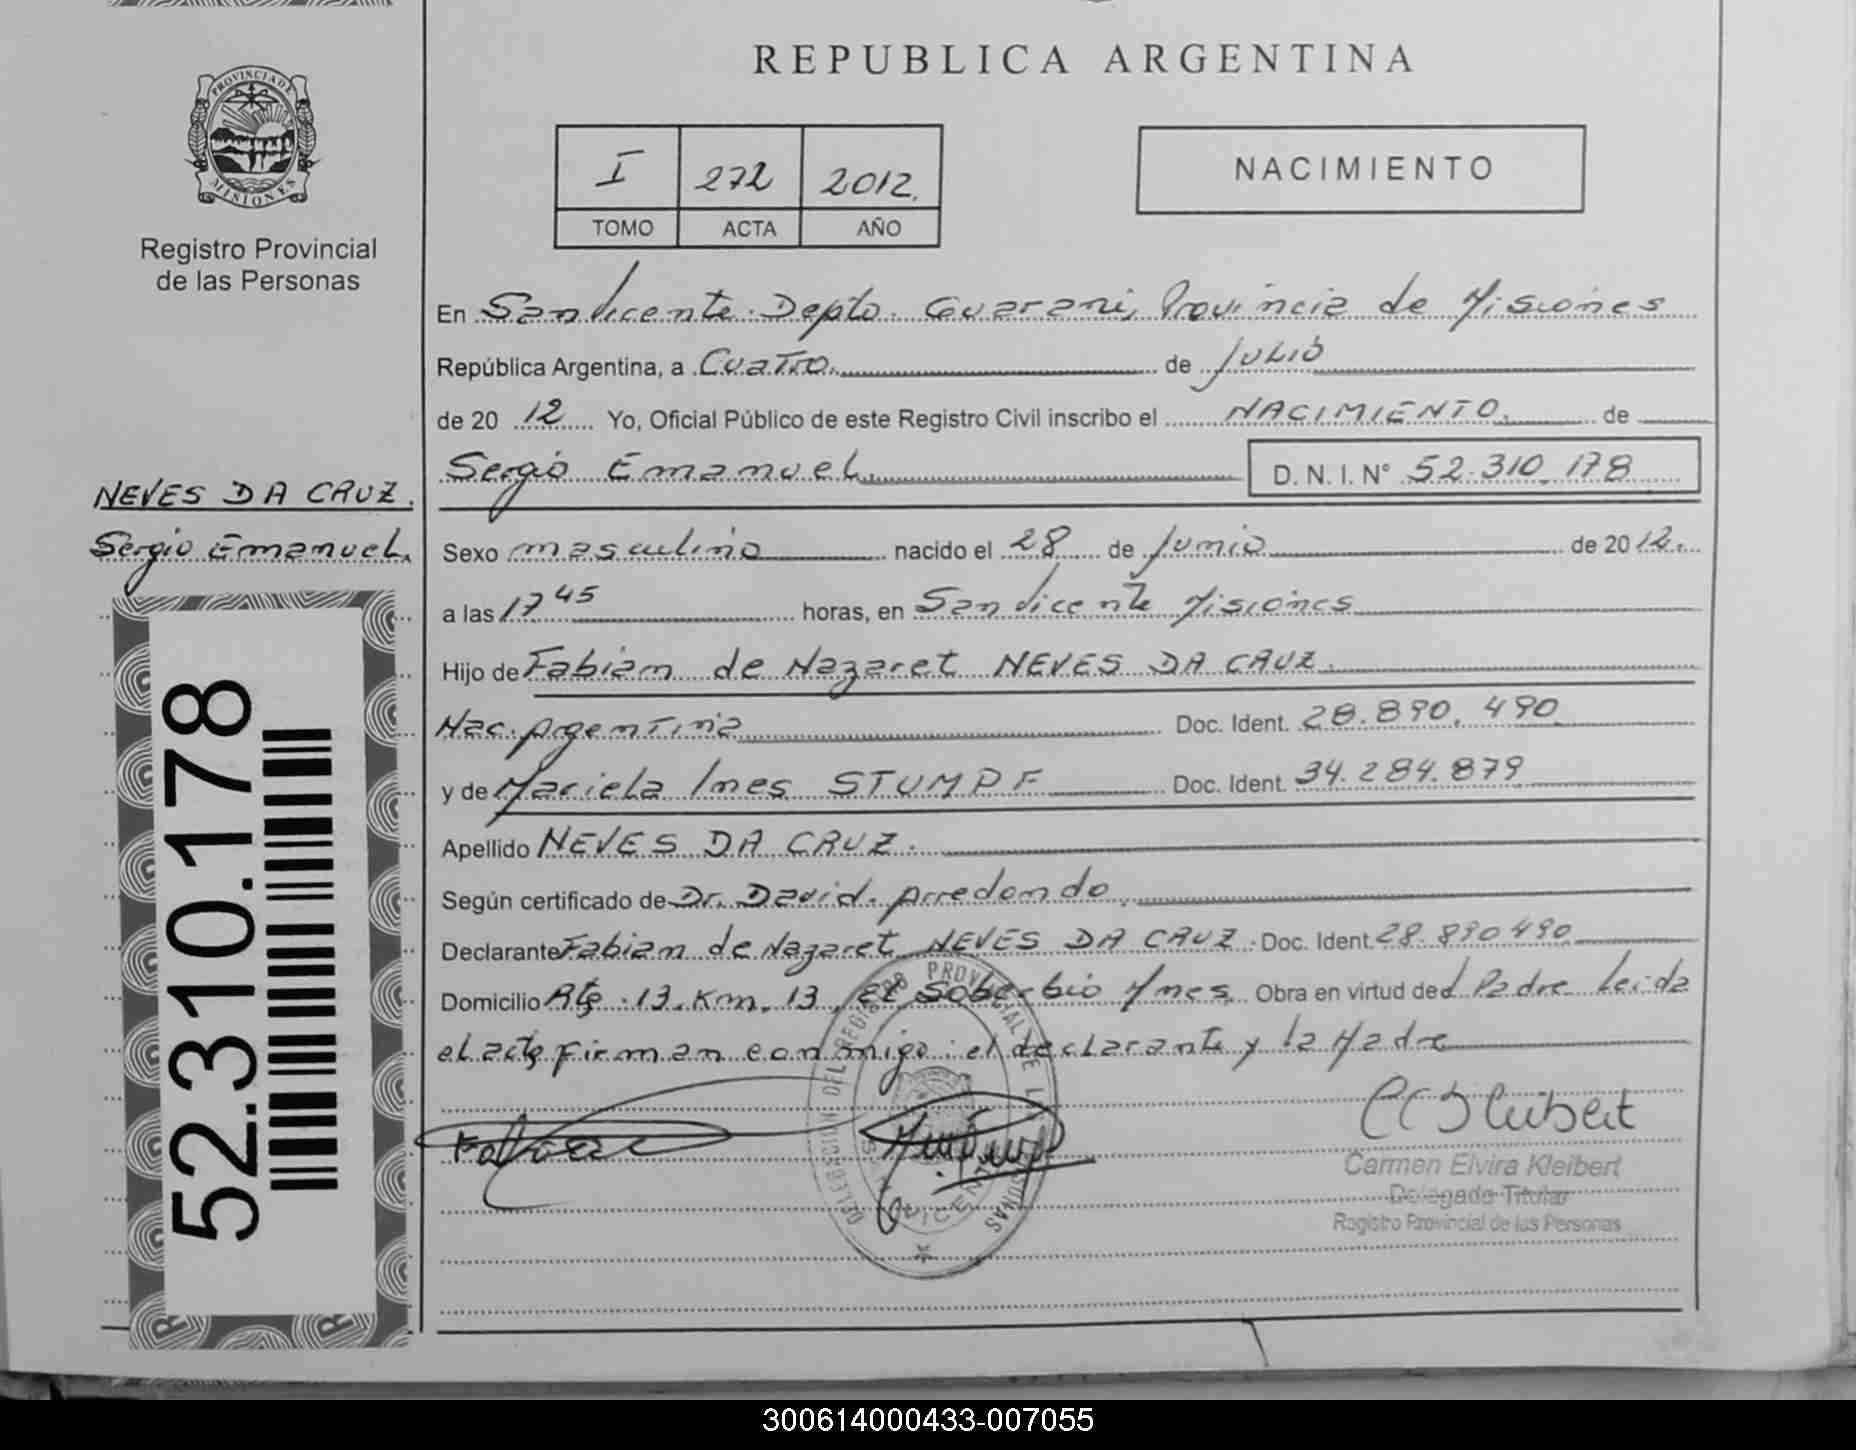 REPUBLICA ARGENTINA
PROVINCIA DE
MISIONES
Registro Provincial
de las Personas
I 272 2012.
TOMO ACTA AÑO
NACIMIENTO
En San Vicente. Depto. Guarani, Provincia de Misiones
República Argentina, a Cuatro. de Julio
de 20 12 Yo, Oficial Público de este Registro Civil inscribo el NACIMIENTO. de
Sergio Emanuel. D. N. I. N° 52.310.178
NEVES DA CRUZ.
Sergio Emanuel.
Sexo masculino nacido el 28 de Junio de 2012.
a las 17 45 horas, en San Vicente Misiones
Hijo de Fabian de Nazaret NEVES DA CRUZ.
Nac. Argentina Doc. Ident. 28.890.490
y de Mariela Ines STUMPF Doc. Ident. 34.284.879
Apellido NEVES DA CRUZ.
Según certificado de Dr. David. Arredondo.
Declarante Fabian de Nazaret NEVES DA CRUZ. Doc. Ident. 28.890490
Domicilio Rta. 13. Km. 13, El Soberbio Mnes. Obra en virtud del Padre Leida
el acta firman conmigo: el declarante y la Madre
52.310.178
DELEGACION DEL REGISTRO PROVINCIAL DE LAS PERSONAS
Carmen Elvira Kleibert
Delegada Titular
Registro Provincial de las Personas
300614000433-007055